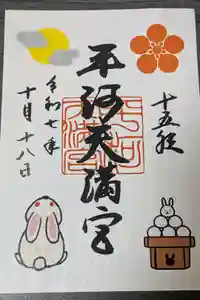 十五夜
平河天満宮
令和七年
十月十八日